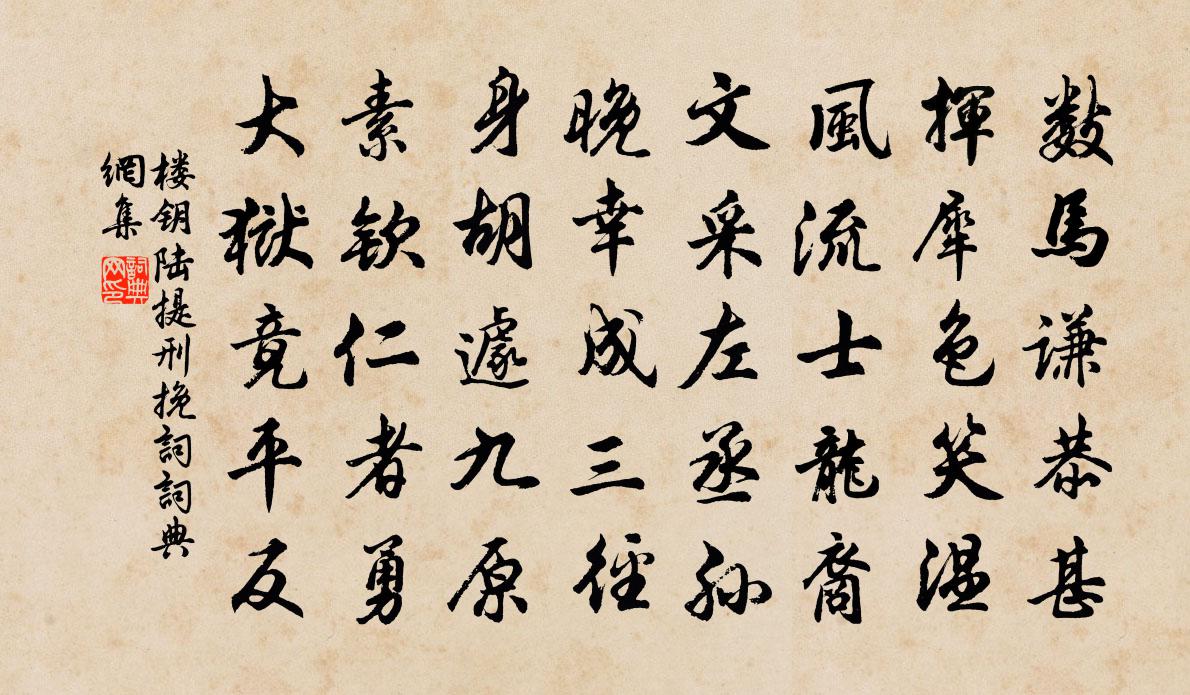 數馬謙恭甚
揮犀色笑温
風流士龍裔
文采左丞孙
晚幸成三徑
身胡遽九原
素欽仁者勇
大獄竟平反
楼钥陆提刑挽詞詞典
網集
詞典網印